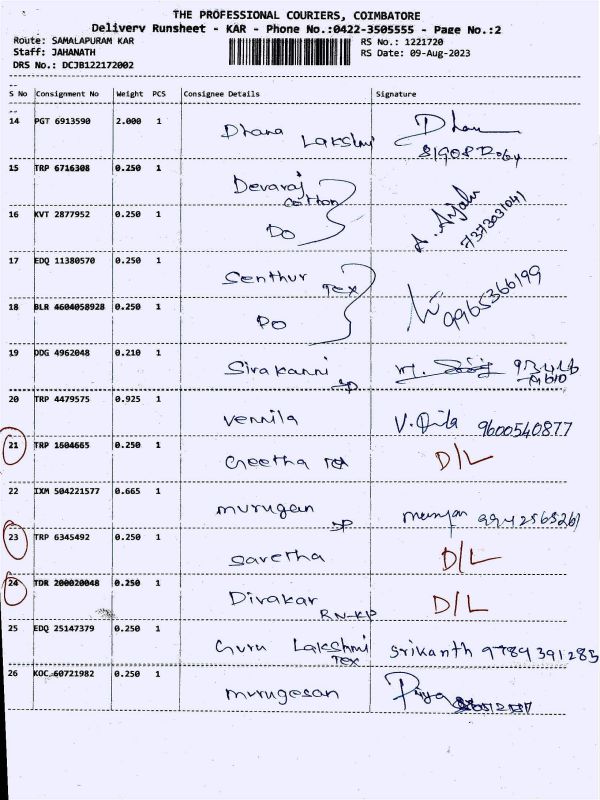 THE PROFESSIONAL COURIERS, COIMBATORE
Delivery Runsheet - KAR - Phone No.:0422-3505555 - Page No.:2
Route: SAMALAPURAM KAR RS No.: 1221720
Staff: JAHANATH RS Date: 09-Aug-2023
DRS No.: DCJB122172002
S No Consignment No Weight PCS Consignee Details Signature
14 PGT 6913590 2.000 1 Dhana Lakshmi
15 TRP 6716308 0.250 1 Devaraj cotton
16 KVT 2877952 0.250 1 Do 7373031041
17 EDQ 11380570 0.250 1 Senthur Tex
18 BLR 4604058928 0.250 1 Do 9965366199
19 DDG 4962048 0.210 1 Sivakanni
20 TRP 4479575 0.925 1 Vennila 9600540877
21 TRP 1604665 0.250 1 Geetha D/L
22 IXM 504221577 0.665 1 murugan
23 TRP 6345492 0.250 1 Savetha D/L
24 TDR 200020048 0.250 1 Divakar RN-KP D/L
25 EDQ 25147379 0.250 1 Guru Lakshmi Tex Srikanth 9789391285
26 KOC 60721982 0.250 1 murugesan Priya